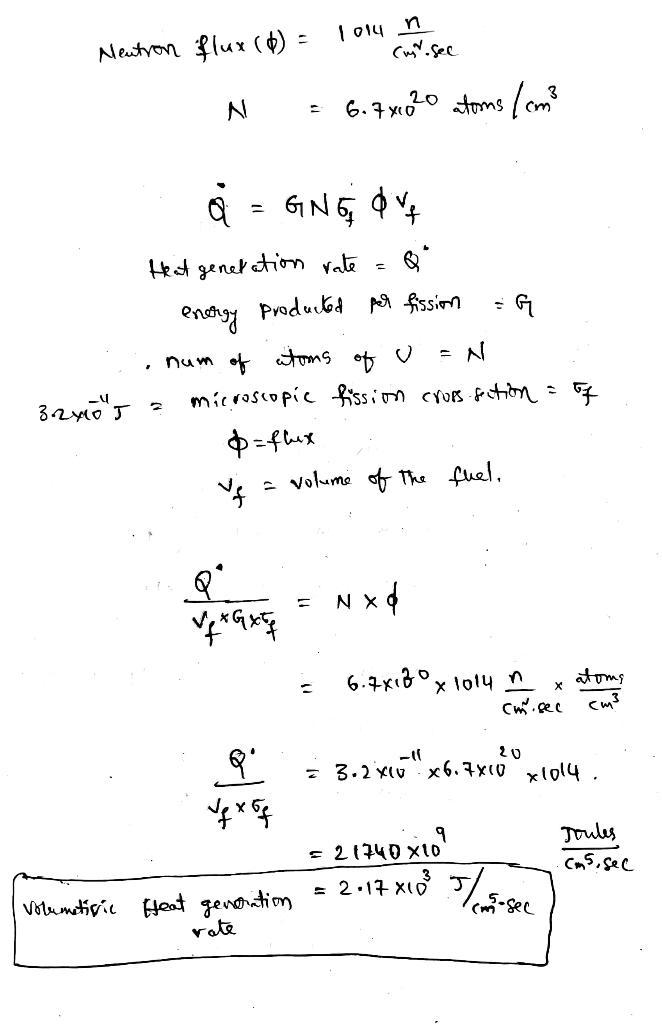 Neutron flux (ϕ) = 1014 n/cm².sec
N = 6.7x10²⁰ atoms/cm³
Q̇ = G N σf ϕ Vf
Heat generation rate = Q̇
energy producted per fission = G
. num of atoms of U = N
3.2x10⁻¹¹ J = microscopic fission cross section = σf
ϕ = flux
Vf = volume of The fuel.
Q̇/(Vf x G x σf) = N x ϕ
= 6.7x10²⁰ x 1014 n/cm².sec x atoms/cm³
Q̇/(Vf x σf) = 3.2x10⁻¹¹ x6.7x10²⁰ x1014 .
= 21740 x10⁹ Joules/cm⁵.sec
Volumetric Heat generation rate = 2.17 x10³ J/cm⁵-sec